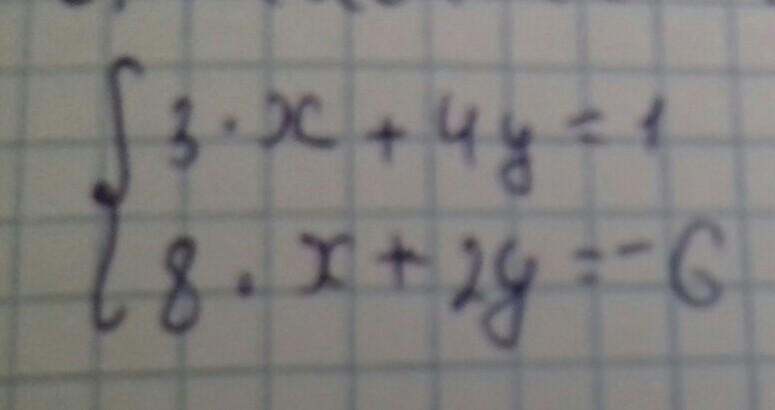 3·x + 4y = 1
8·x + 2y = -6